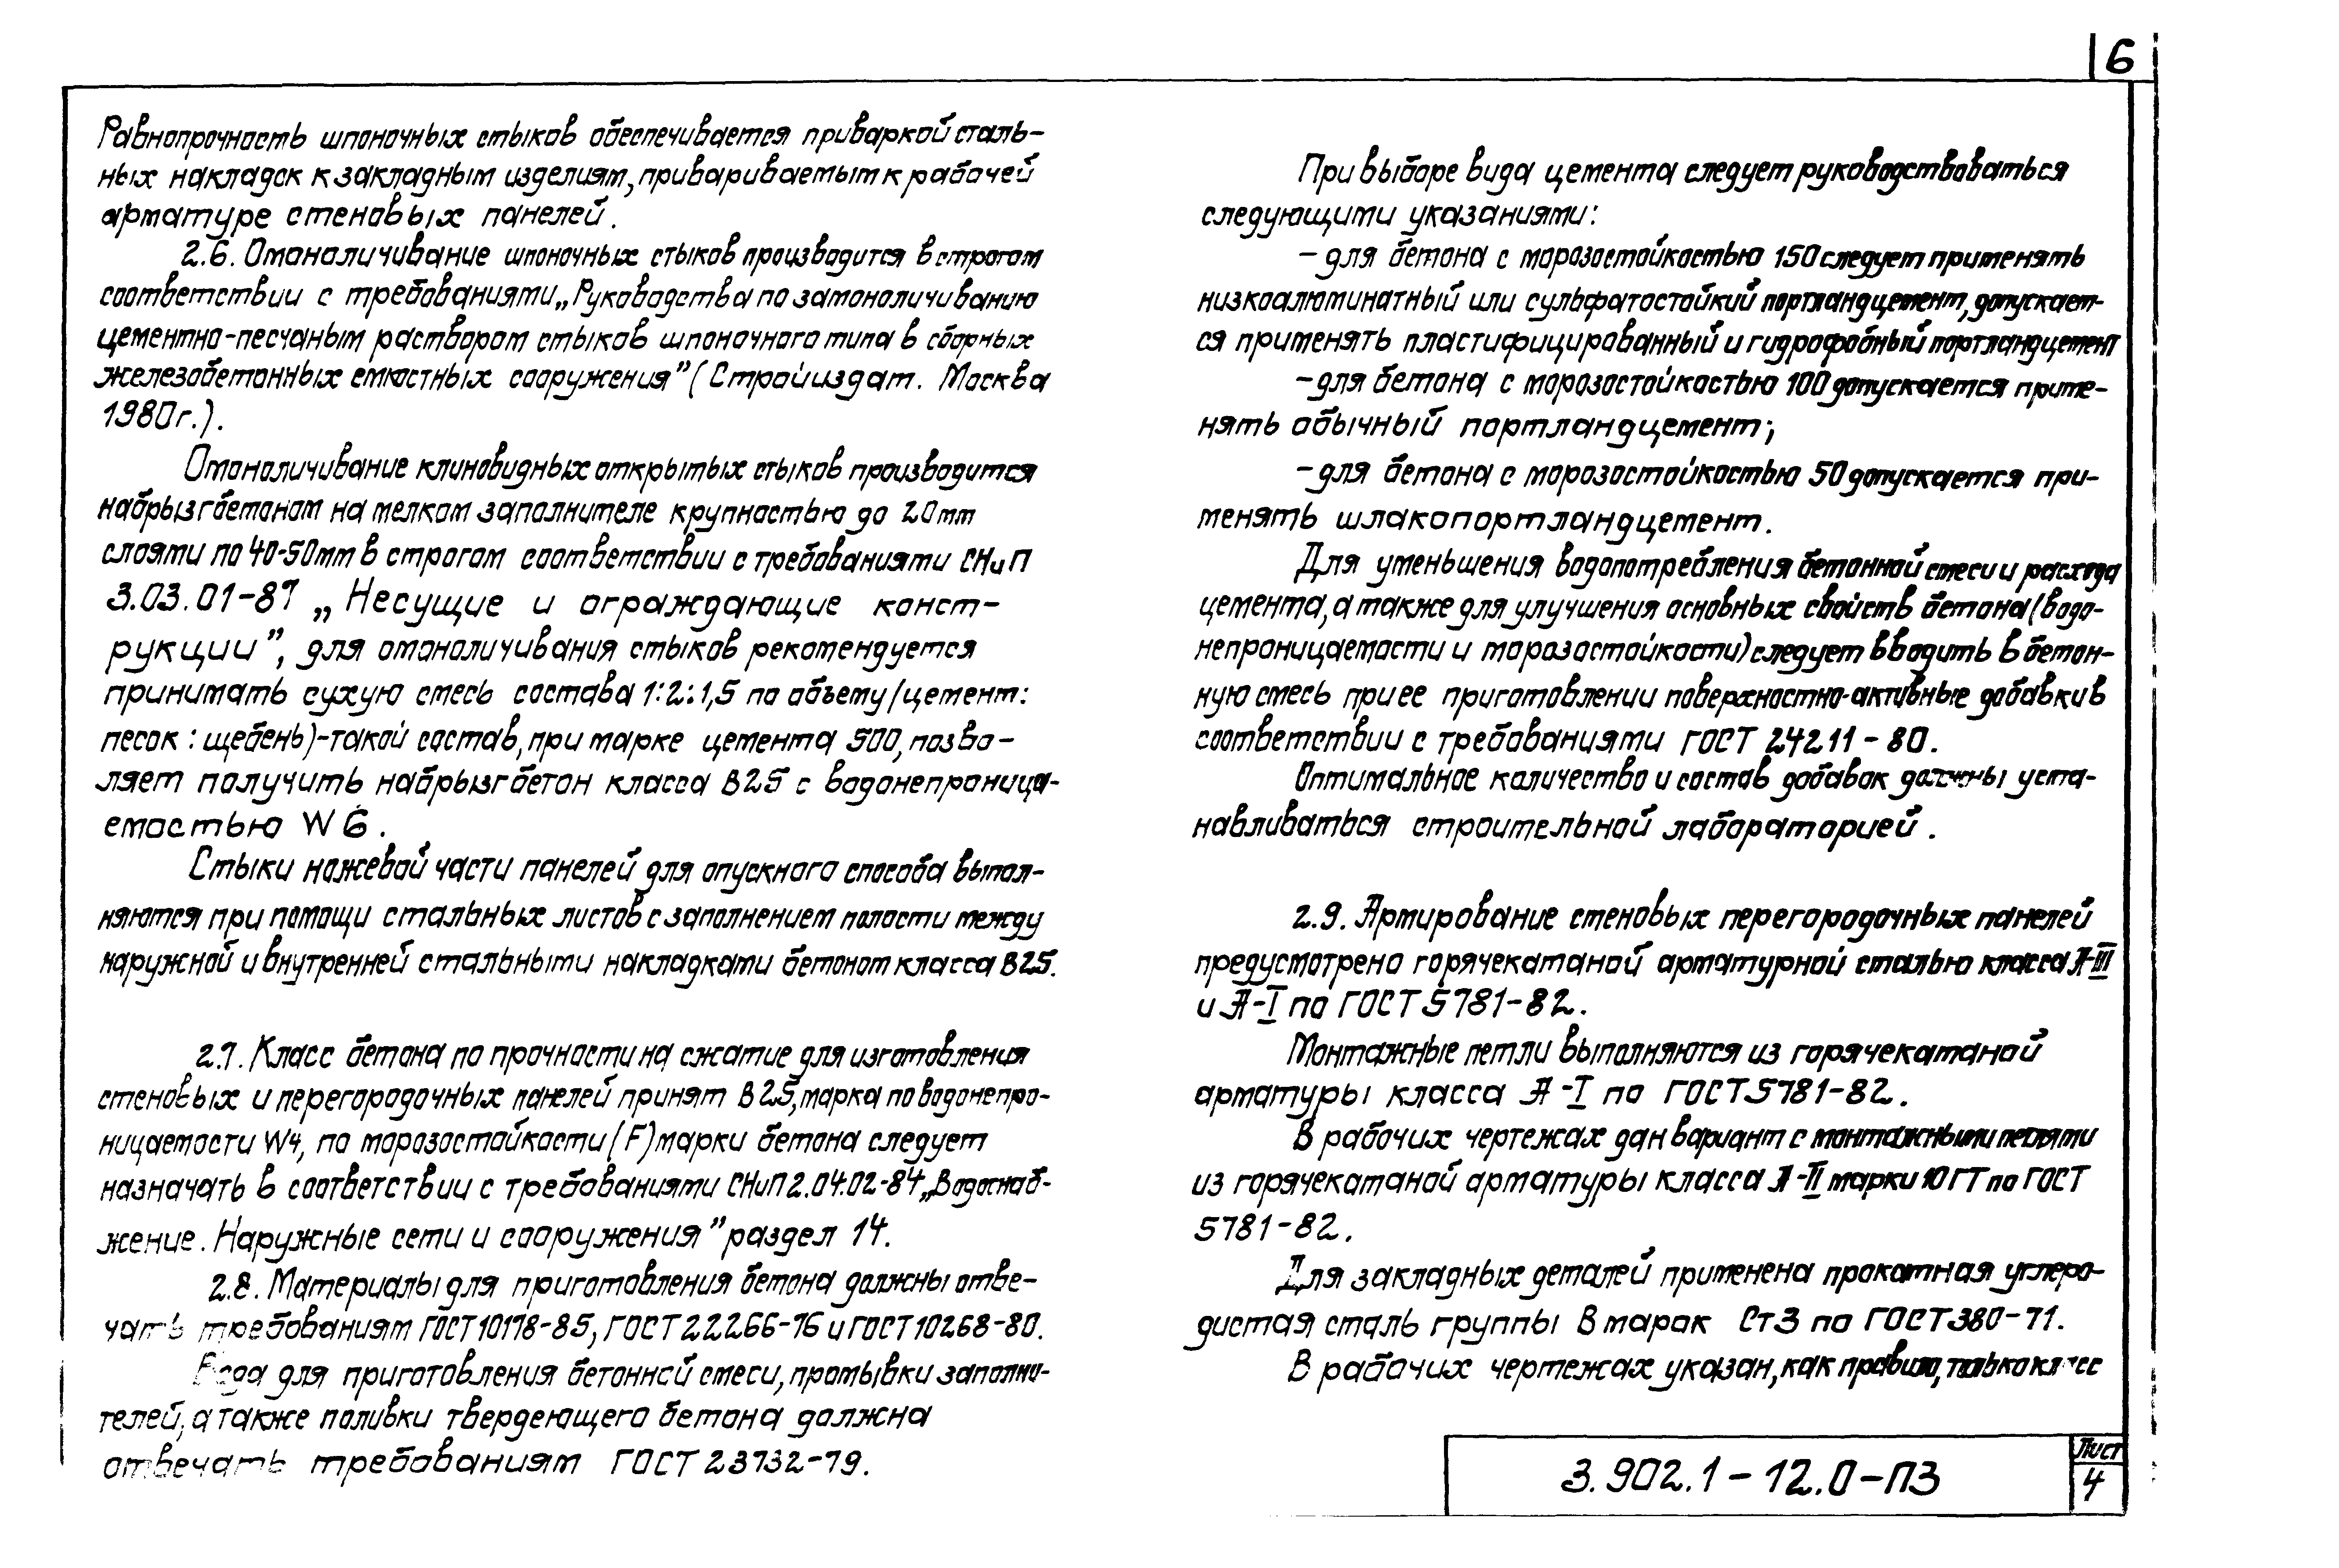 6
Равнопрочность шпоночных стыков обеспечивается приваркой сталь-
ных накладок к закладным изделиям, привариваемым к рабочей
арматуре стеновых панелей.
2.6. Омоноличивание шпоночных стыков производится в строгом
соответствии с требованиями „Руководства по замоноличиванию
цементно-песчаным раствором стыков шпоночного типа в сборных
железобетонных емкостных сооружения" (Стройиздат. Москва
1980г.).
Омоноличивание клиновидных открытых стыков производится
набрызгбетоном на мелком заполнителе крупностью до 20мм
слоями по 40-50мм в строгом соответствии с требованиями СНиП
3.03.01-87 „Несущие и ограждающие конст-
рукции", для омоноличивания стыков рекомендуется
принимать сухую смесь состава 1:2:1,5 по объему (цемент:
песок : щебень)-такой состав, при марке цемента 500, позво-
ляет получить набрызгбетон класса В25 с водонепроница-
емостью W6.
Стыки ножевой части панелей для опускного способа выпол-
няются при помощи стальных листов с заполнением полости между
наружной и внутренней стальными накладками бетоном класса В25.
2.7. Класс бетона по прочности на сжатие для изготовления
стеновых и перегородочных панелей принят В25, марка по водонепро-
ницаемости W4, по морозостойкости (F) марки бетона следует
назначать в соответствии с требованиями СНиП 2.04.02-84 „Водоснаб-
жение. Наружные сети и сооружения" раздел 14.
2.8. Материалы для приготовления бетона должны отве-
чать требованиям ГОСТ 10178-85, ГОСТ 22266-76 и ГОСТ 10268-80.
Вода для приготовления бетонной смеси, промывки заполни-
телей, а также поливки твердеющего бетона должна
отвечать требованиям ГОСТ 23732-79.
При выборе вида цемента следует руководствоваться
следующими указаниями:
- для бетона с морозостойкостью 150 следует применять
низкоалюминатный или сульфатостойкий портландцемент, допускает-
ся применять пластифицированный и гидрофобный портландцемент
- для бетона с морозостойкостью 100 допускается приме-
нять обычный портландцемент;
- для бетона с морозостойкостью 50 допускается при-
менять шлакопортландцемент.
Для уменьшения водопотребления бетонной смеси и расхода
цемента, а также для улучшения основных свойств бетона (водо-
непроницаемости и морозостойкости) следует вводить в бетон-
ную смесь при ее приготовлении поверхностно-активные добавки в
соответствии с требованиями ГОСТ 24211-80.
Оптимальное количество и состав добавок должны уста-
навливаться строительной лабораторией.
2.9. Армирование стеновых перегородочных панелей
предусмотрено горячекатаной арматурной сталью класса А-III
и А-I по ГОСТ 5781-82.
Монтажные петли выполняются из горячекатаной
арматуры класса А-I по ГОСТ 5781-82.
В рабочих чертежах дан вариант с монтажными петлями
из горячекатаной арматуры класса А-II марки 10ГТ по ГОСТ
5781-82.
Для закладных деталей применена прокатная углеро-
дистая сталь группы В марок Ст3 по ГОСТ 380-71.
В рабочих чертежах указан, как правило, только класс
3.902.1-12.0-ПЗ
Лист
4